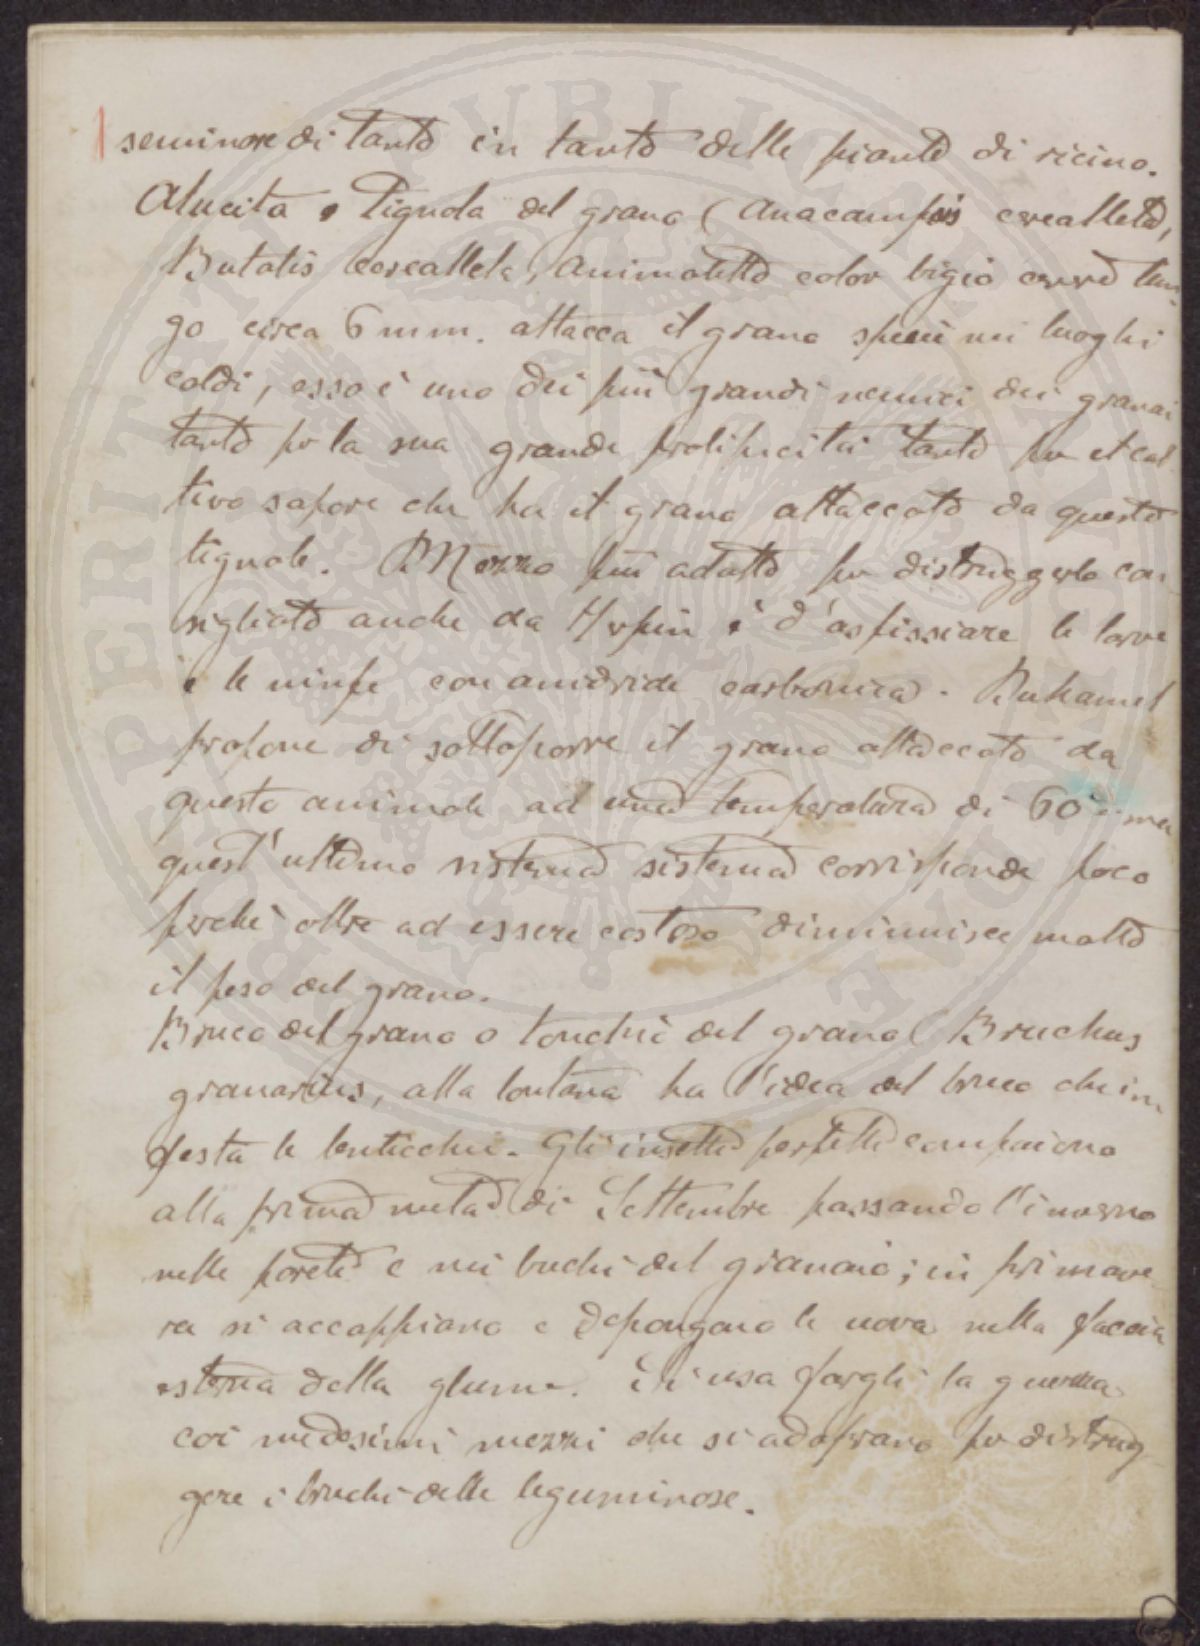 seminare di tanto in tanto delle piante di ricino.
Alucita o Tignola del grano (Anacampsis cerealleta,
Butalis cerealleta, animaletto color bigio cenere lun-
go circa 6 mm. attacca il grano specie nei luoghi
caldi, esso è uno dei più grandi nemici dei granai
tanto per la sua grande prolificità tanto per il cat
tivo sapore che ha il grano attaccato da questa
tignola. Mezzo più adatto per distruggerla con
sigliato anche da è d'asfissiare le larve
e le ninfe con anidride carbonica. Duhamel
propone di sottoporre il grano attaccato da
questo animale ad una temperatura di 60° ma
quest'ultimo sistema sistema corrisponde poco
perchè oltre ad essere costoso diminuisce molto
il peso del grano.
Bruco del grano o tonchio del grano (Bruchus
granarius, alla lontana ha l'idea del bruco che in
festa le lenticchie. Gli insetti perfetti compaiono
alla prima metà di Settembre passando l'inverno
nelle pareti e nei buchi del granaio; in primave
ra si accoppiano e depongono le uova nella faccia
esterna della glume. Si usa fargli la guerra
coi medesimi mezzi che si adoprano per distrug
gere i bruchi delle leguminose.